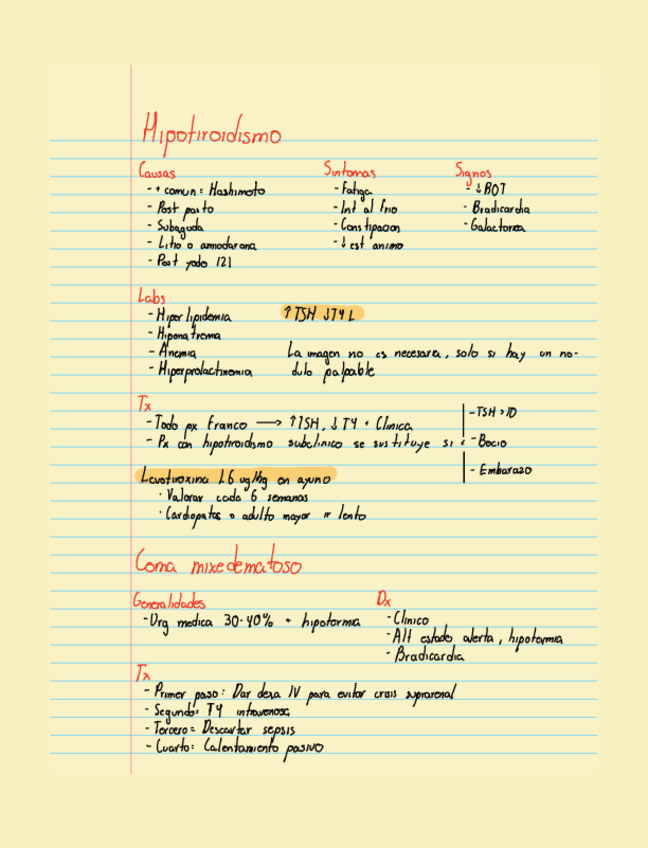 Hipotiroidismo
Causas
- + comun: Hashimoto
- Post parto
- Subaguda
- Litio o amiodarona
- Post yodo 121
Sintomas
- Fatiga
- Int al frio
- Constipacion
- ↓ est animo
Signos
- ↓ ROT
- Bradicardia
- Galactorrea
Labs
- Hiperlipidemia
- Hiponatremia
- Anemia
- Hiperprolactinemia
↑ TSH ↓T4 L
La imagen no es necesaria, solo si hay un no-
dulo palpable
Tx
- Todo px Franco → ↑TSH, ↓ T4 + Clinica
- Px con hipotiroidismo subclinico se sustituye si:
- TSH > 10
- Bocio
- Embarazo
Levotiroxina 1.6 ug/kg en ayuno
· Valorar cada 6 semanas
· Cardiopatas o adulto mayor ir lento
Coma mixedematoso
Generalidades
- Urg medica 30-40% + hipotermia
Dx
- Clinico
- Alt estado alerta, hipotermia
- Bradicardia
Tx
- Primer paso: Dar dexa IV para evitar crisis suprarenal
- Segundo: T4 intravenosa
- Tercero: Descartar sepsis
- Cuarto: Calentamiento pasivo